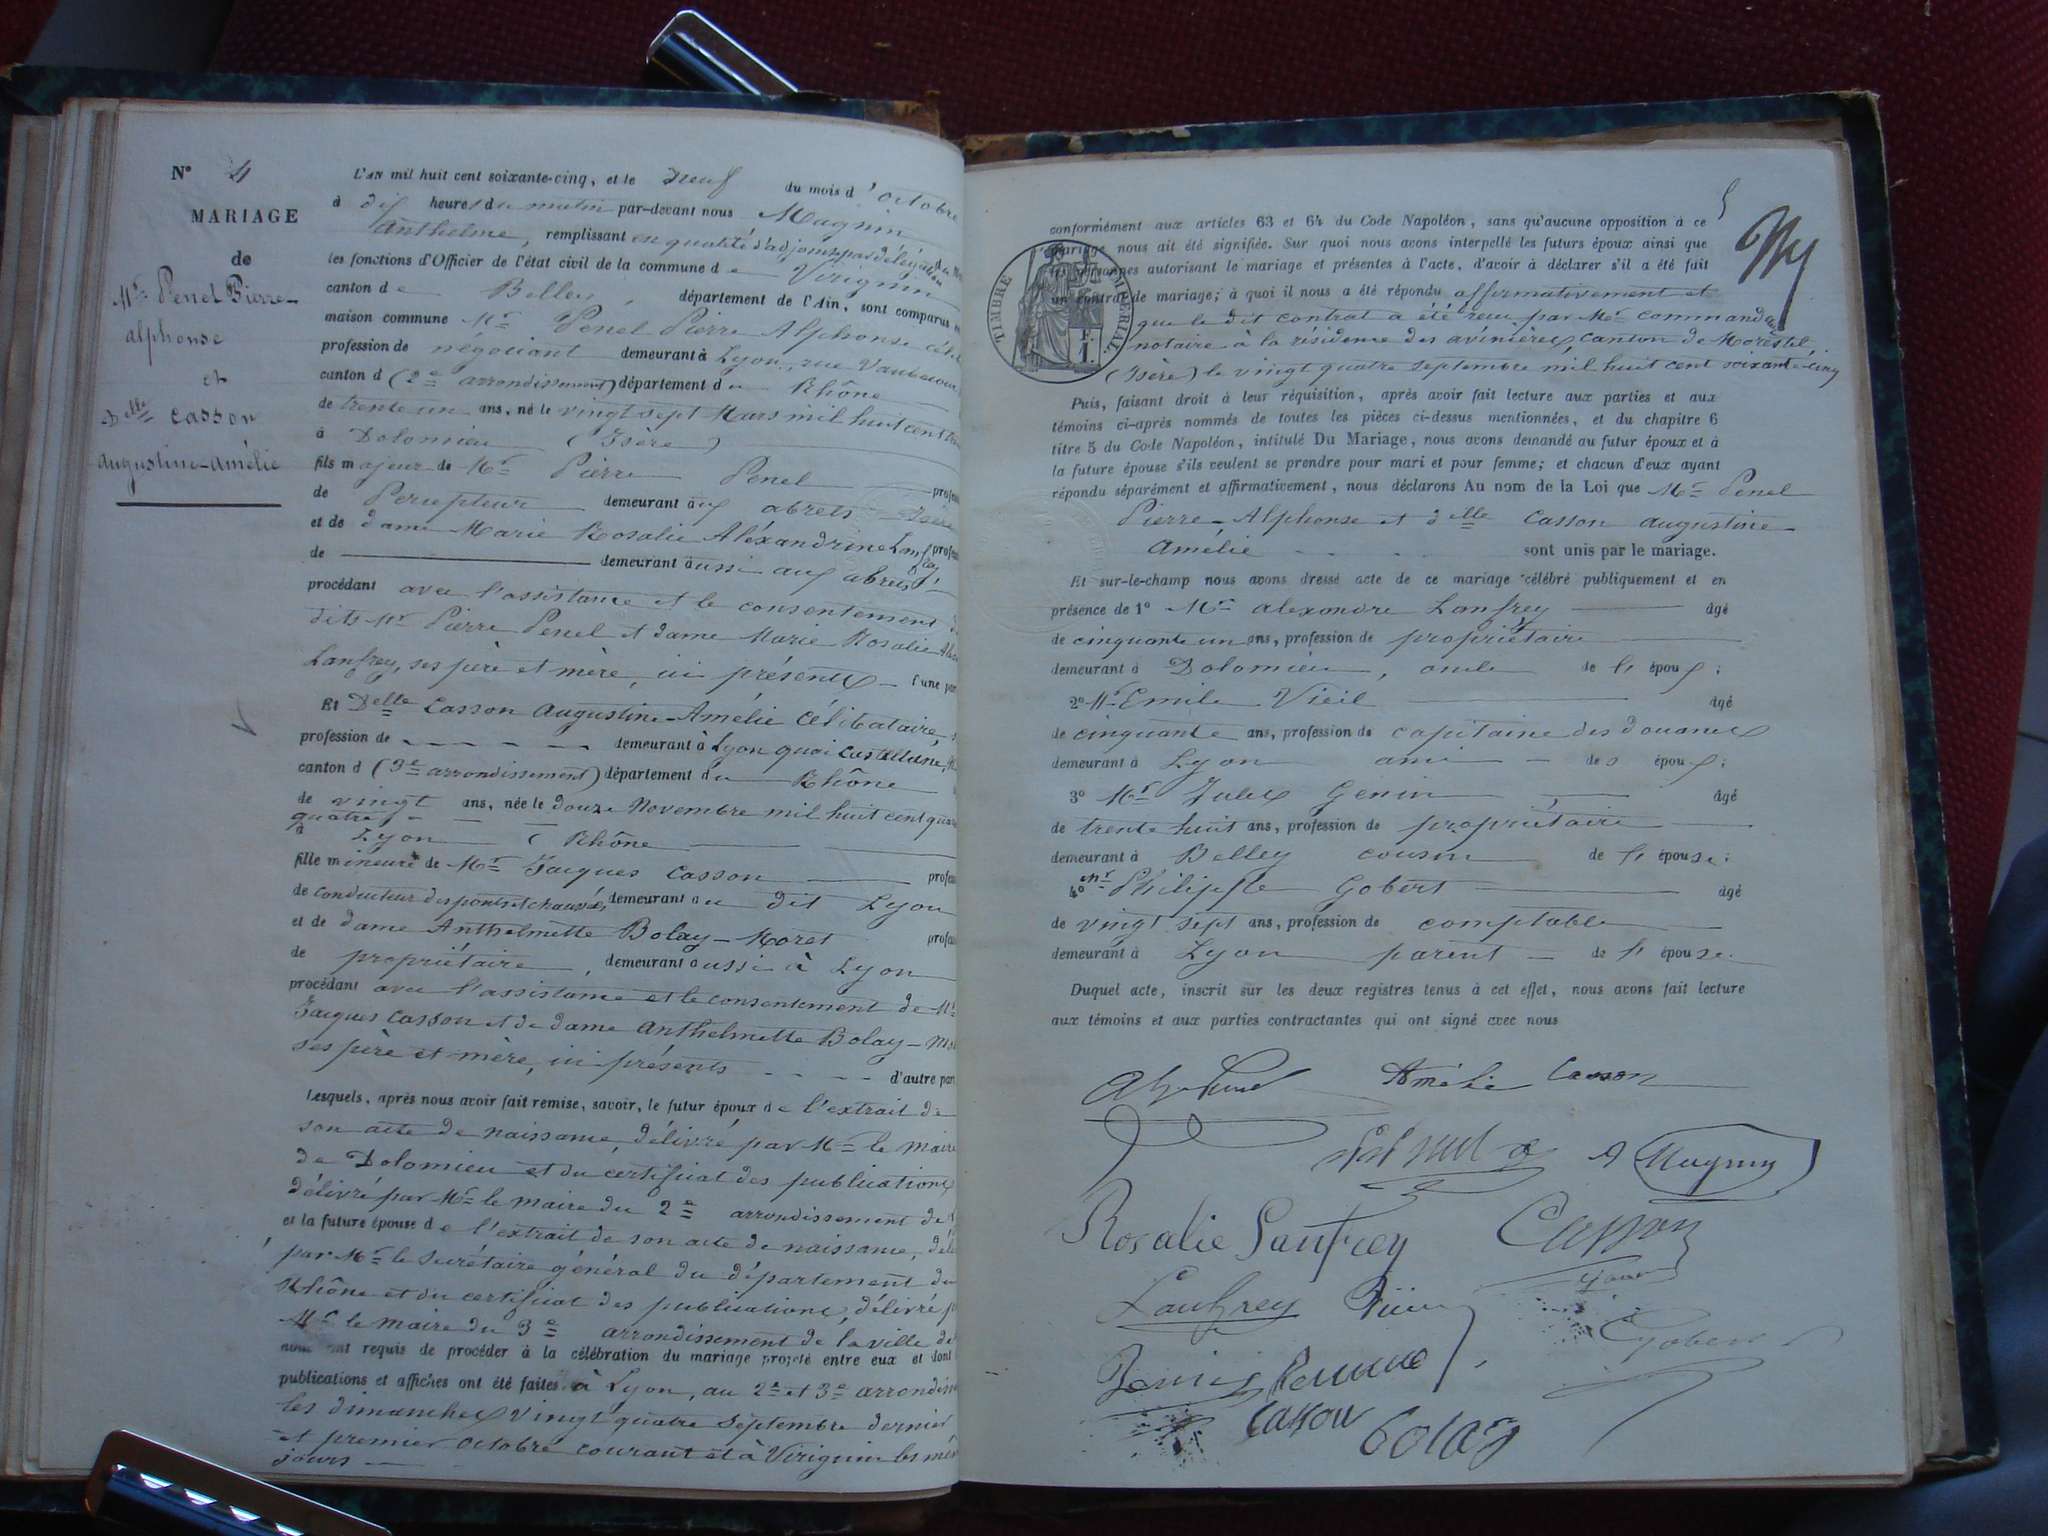 N° 4
MARIAGE
de
Mr Penel Pierre-
alphonse
et
Delle Casson
augustine-Amélie
L'AN mil huit cent soixante-cinq, et le neuf du mois d'octobre
à dix heures du matin par-devant nous Magnin
Anthelme, remplissant en qualité d'adjoint par délégation
les fonctions d'Officier de l'état civil de la commune de Virignin
canton de Belley, département de l'Ain, sont comparus
maison commune Mr Penel Pierre Alphonse
profession de négociant demeurant à Lyon, rue
canton d (2e arrondissement) département du Rhône
de trente un ans, né le vingt sept Mars mil huit cent
à Dolomieu (Isère)
fils majeur de Mr Pierre Penel
de Percepteur demeurant aux abrets Isère
et de dame Marie Rosalie Aléxandrine Lanfrey
de demeurant aussi aux abrets
procédant avec l'assistance et le consentement
dits Mr Pierre Penel et dame Marie Rosalie
Lanfrey, ses père et mère, ici présents d'une part
Et Delle Casson Augustine-Amélie Célibataire
profession de demeurant à Lyon quai Castellane,
canton d (3e arrondissement) département du Rhône
de vingt ans, née le douze Novembre mil huit cent
quatre
à Lyon (Rhône
fille mineure de Mr Jacques Casson
de conducteur des ponts et chaussées demeurant au dit Lyon
et de dame Anthelmette Bolay-Moret
de propriétaire, demeurant aussi à Lyon
procédant avec l'assistance et le consentement de Mr
Jacques Casson et de dame Anthelmette Bolay-
ses père et mère, ici présents d'autre part
Lesquels, après nous avoir fait remise, savoir, le futur époux de l'extrait de
son acte de naissance, délivré par Mr le maire
de Dolomieu et du certificat des publications
délivré par Mr le maire du 2e arrondissement de
et la future épouse de l'extrait de son acte de naissance,
par Mr le secrétaire général du département du
Rhône et du certificat des publications, délivré
Mr le maire du 3e arrondissement de la ville de
nous ont requis de procéder à la célébration du mariage projeté entre eux et dont
publications et affiches ont été faites à Lyon, au 2e et 3e
les dimanches vingt quatre septembre dernier
et premier octobre courant et à Virignin les
jours
5
conformément aux articles 63 et 64 du Code Napoléon, sans qu'aucune opposition à ce
mariage nous ait été signifiée. Sur quoi nous avons interpellé les futurs époux ainsi que
les personnes autorisant le mariage et présentes à l'acte, d'avoir à déclarer s'il a été fait
un contrat de mariage; à quoi il nous a été répondu affirmativement et
que le dit contrat a été reçu par Me
notaire à la résidence des avinières, canton de Morestel,
(Isère) le vingt quatre septembre mil huit cent soixante-cinq
TIMBRE IMPÉRIAL
1 F.
Puis, faisant droit à leur réquisition, après avoir fait lecture aux parties et aux
témoins ci-après nommés de toutes les pièces ci-dessus mentionnées, et du chapitre 6
titre 5 du Code Napoléon, intitulé Du Mariage, nous avons demandé au futur époux et à
la future épouse s'ils veulent se prendre pour mari et pour femme; et chacun d'eux ayant
répondu séparément et affirmativement, nous déclarons Au nom de la Loi que Mr Penel
Pierre-Alphonse et delle Casson augustine-
Amélie sont unis par le mariage.
Et sur-le-champ nous avons dressé acte de ce mariage célébré publiquement et en
présence de 1° Mr alexandre Lanfrey âgé
de cinquante un ans, profession de propriétaire
demeurant à Dolomieu, oncle de l'époux;
2° Mr Emile Vieil âgé
de cinquante ans, profession de capitaine des douanes
demeurant à Lyon ami des époux;
3° Mr Jules Genin âgé
de trente huit ans, profession de propriétaire
demeurant à Belley cousin de l'épouse;
4° Mr Philippe Gobert âgé
de vingt sept ans, profession de comptable
demeurant à Lyon parent de l'épouse.
Duquel acte, inscrit sur les deux registres tenus à cet effet, nous avons fait lecture
aux témoins et aux parties contractantes qui ont signé avec nous
Amélie Casson
A Magnin
Rosalie Lanfrey Casson
Lanfrey
Gobert
Casson Bolay